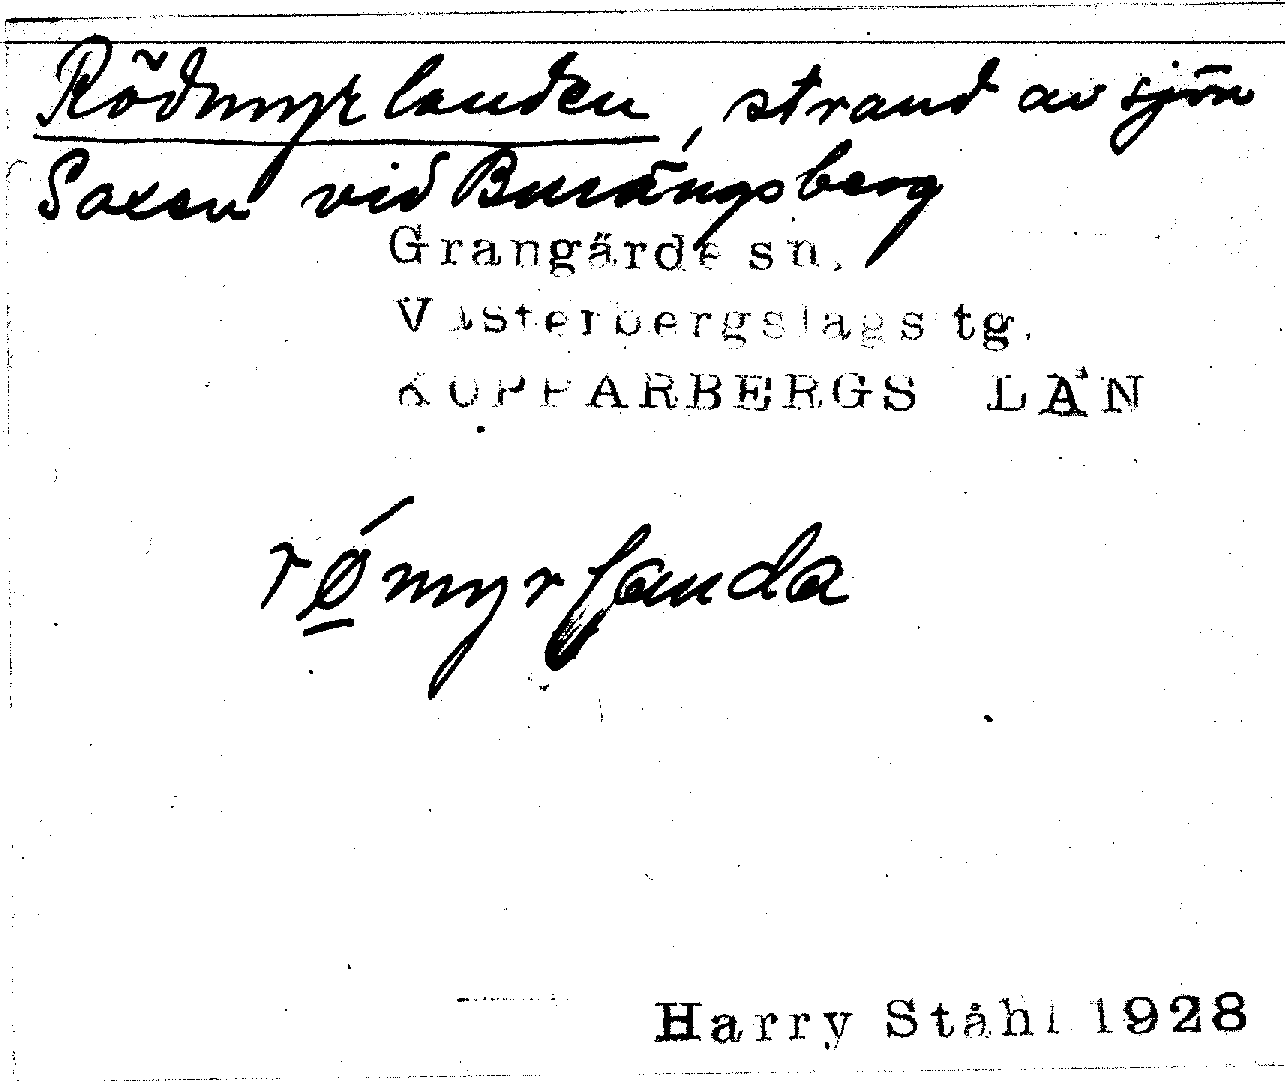 Rödmyrlanden, strand av sjön
Saxen vid Burängsberg
Grangärde sn.
Västerbergslags tg.
KOPPARBERGS LÄN
rǿmyrlanda
Harry Ståhl 1928